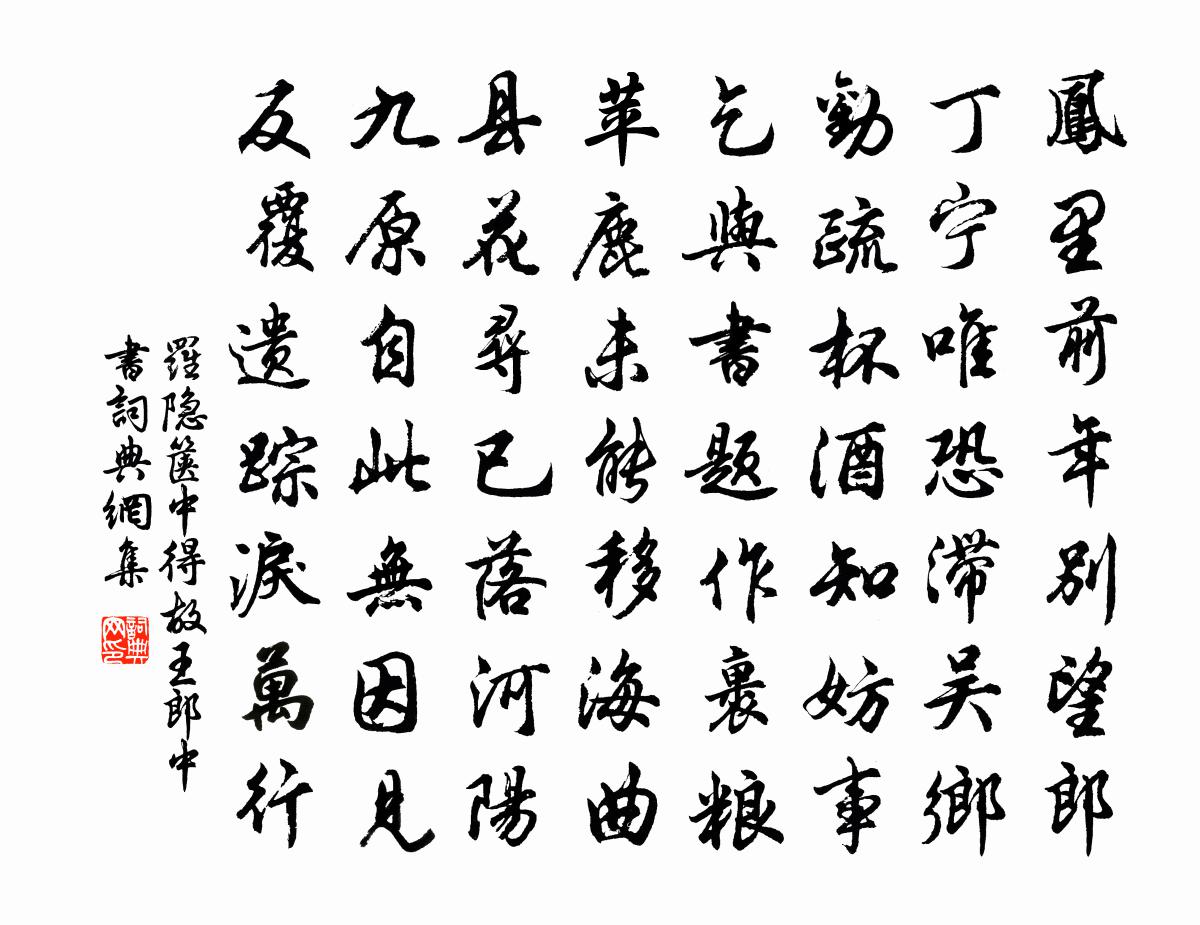 鳳里前年別望郎
丁宁唯恐滞吴鄉
勸疏杯酒知妨事
乞與書題作裹粮
苹鹿未能移海曲
县花尋已落河陽
九原自此無因見
反覆遗踪淚萬行
羅隐箧中得故王郎中
書詞典網集
詞典网印